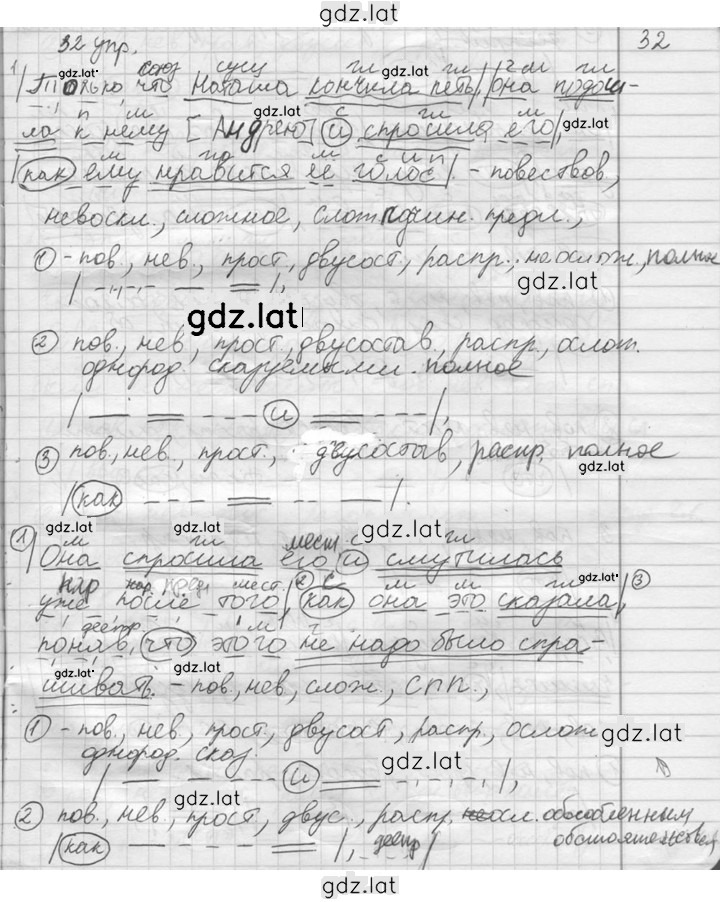 gdz.lat
32 упр. 32
союз сущ гл гл м гл
1 Только что Наташа кончила петь, она подош-
ла к нему [Андрею] и спросила его,
как ему нравится её голос. - повествов,
невоскл., сложное, сложноподчин. предл.,
1 - пов., нев., прост., двусост., распр., неослож., полное
gdz.lat
gdz.lat
2 пов., нев., прост., двусостав., распр., ослож.
однород. сказуемыми. полное
и
3 пов., нев., прост., двусостав, распр. полное
как
gdz.lat
1 Она спросила его и смутилась
уже после того, 2 как она это сказала, 3
поняв, что этого не надо было спра-
шивать. - пов., нев., слож., СПП.,
1 - пов., нев., прост., двусост., распр., ослож.
однород. сказ.
gdz.lat
и
2 пов., нев., прост., двус., распр. осл. обособленным
обстоятельством
как деепр
gdz.lat